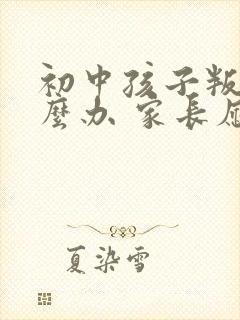 初中孩子叛
麼办 家長应
夏染雪